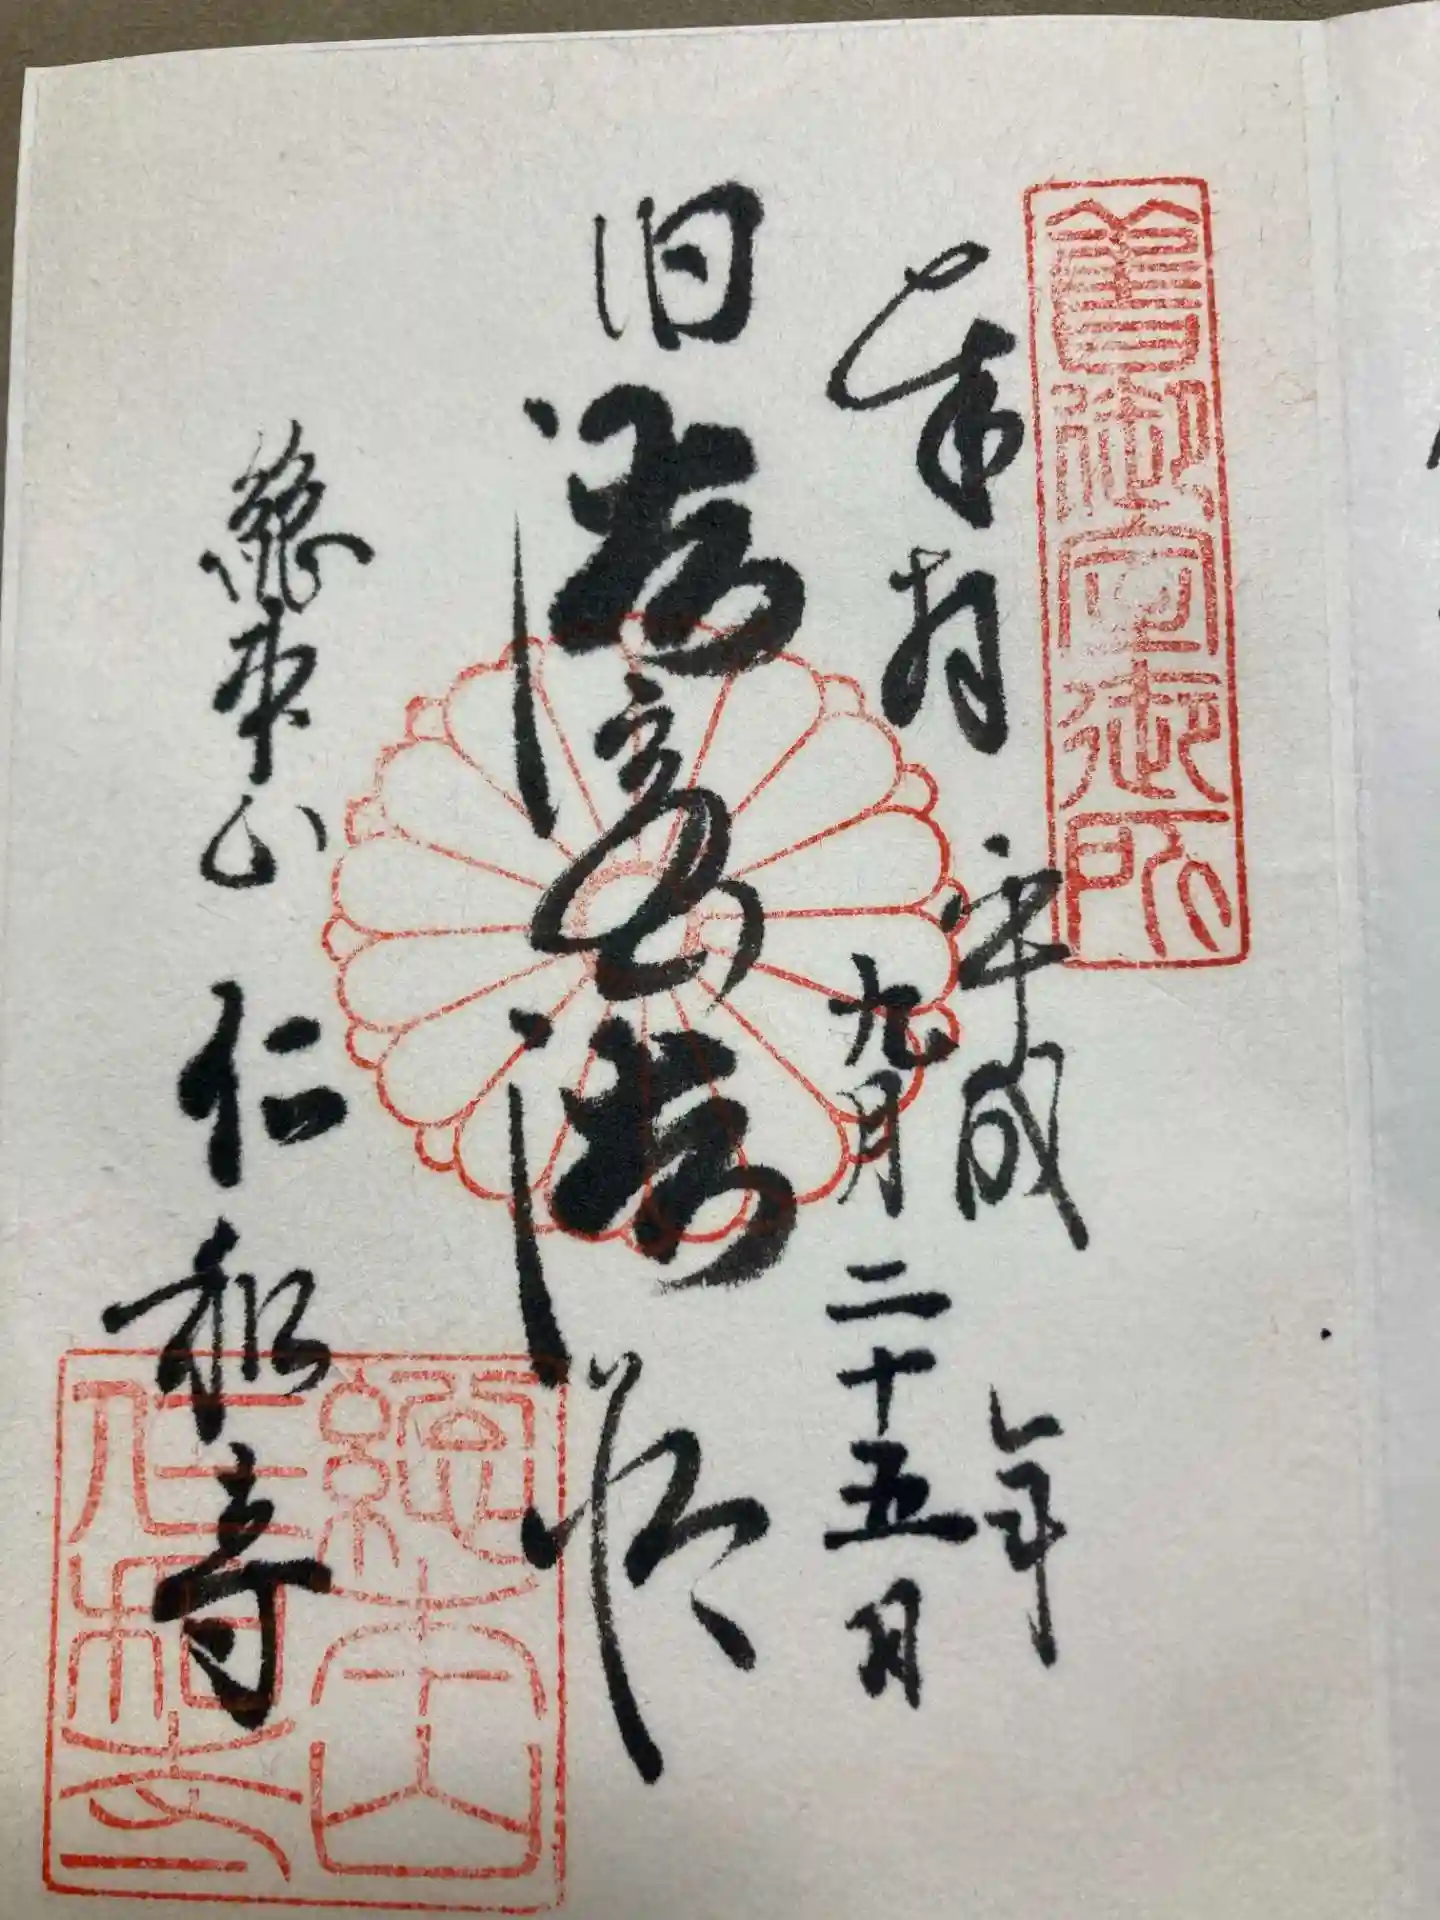 舊御室御所
奉拝 平成 年
九月二十五日
旧御室御所
總本山 仁和寺
總本山
仁和寺